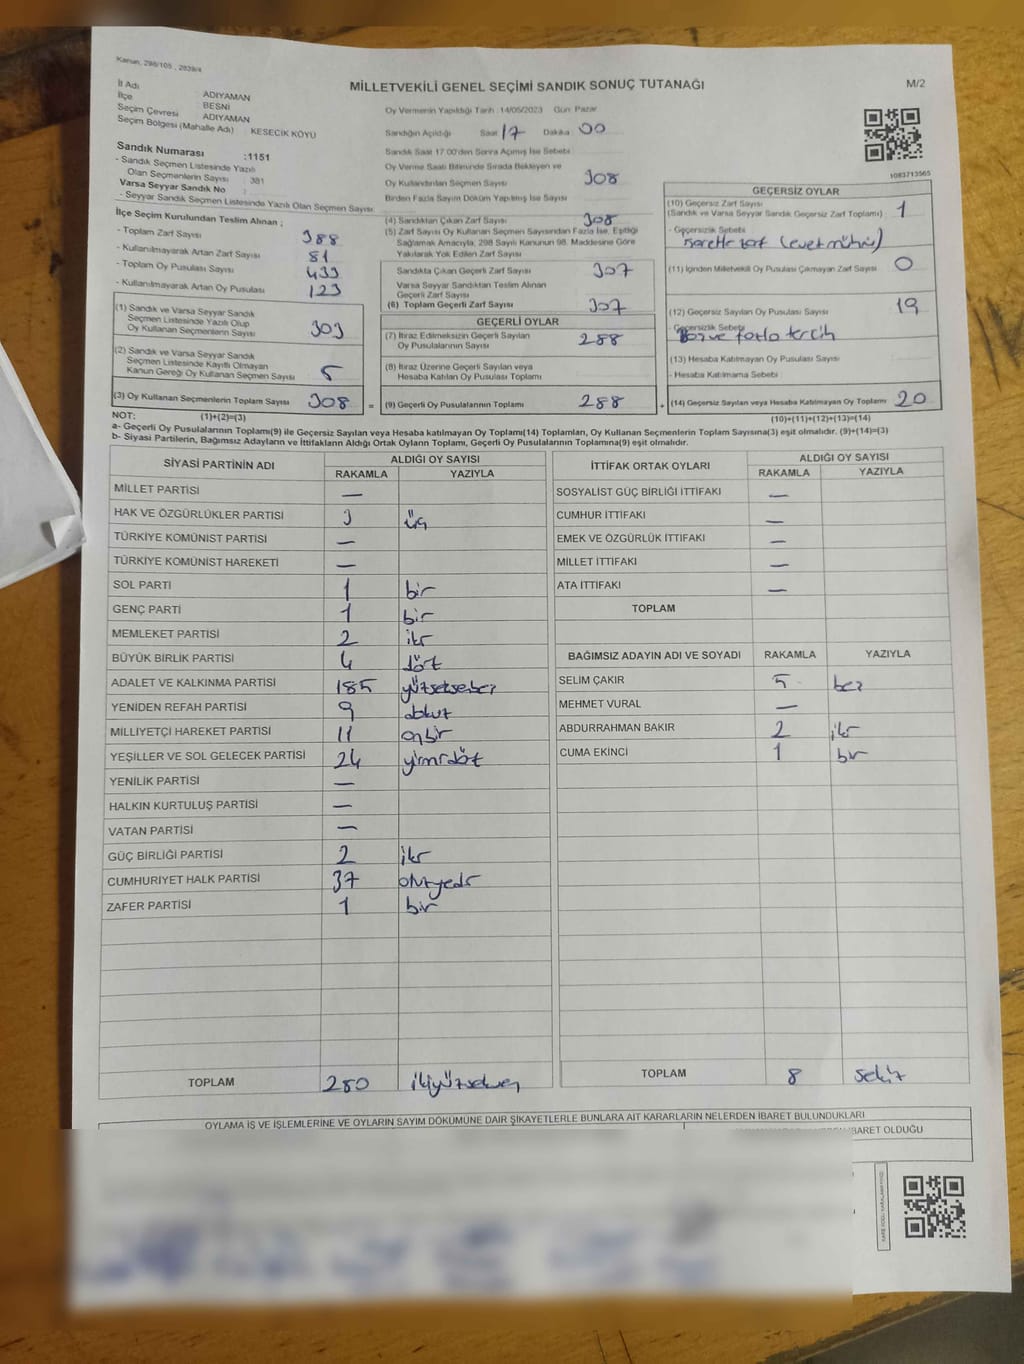 Kanun, 298/105 , 2839/4
MİLLETVEKİLİ GENEL SEÇİMİ SANDIK SONUÇ TUTANAĞI
M/2
İl Adı ADIYAMAN
İlçe BESNİ
Seçim Çevresi ADIYAMAN
Seçim Bölgesi (Mahalle Adı) : KESECİK KÖYÜ
Sandık Numarası :1151
- Sandık Seçmen Listesinde Yazılı
Olan Seçmenlerin Sayısı : 381
Varsa Seyyar Sandık No :
- Seyyar Sandık Seçmen Listesinde Yazılı Olan Seçmen Sayısı:
İlçe Seçim Kurulundan Teslim Alınan ;
- Toplam Zarf Sayısı 388
- Kullanılmayarak Artan Zarf Sayısı 81
- Toplam Oy Pusulası Sayısı 433
- Kullanılmayarak Artan Oy Pusulası 123
(1) Sandık ve Varsa Seyyar Sandık
Seçmen Listesinde Yazılı Olup
Oy Kullanan Seçmenlerin Sayısı 303
(2) Sandık ve Varsa Seyyar Sandık
Seçmen Listesinde Kayıtlı Olmayan
Kanun Gereği Oy Kullanan Seçmen Sayısı 5
(3) Oy Kullanan Seçmenlerin Toplam Sayısı 308
Oy Vermenin Yapıldığı Tarih :14/05/2023 Gün: Pazar
Sandığın Açıldığı Saat 17 Dakika 00
Sandık Saat 17:00'den Sonra Açılmış İse Sebebi
Oy Verme Saati Bitiminde Sırada Bekleyen ve
Oy Kullandırılan Seçmen Sayısı 308
Birden Fazla Sayım Döküm Yapılmış İse Sayısı
(4) Sandıktan Çıkan Zarf Sayısı 308
(5) Zarf Sayısı Oy Kullanan Seçmen Sayısından Fazla İse, Eşitliği
Sağlamak Amacıyla, 298 Sayılı Kanunun 98. Maddesine Göre
Yakılarak Yok Edilen Zarf Sayısı
Sandıkta Çıkan Geçerli Zarf Sayısı 307
Varsa Seyyar Sandıktan Teslim Alınan
Geçerli Zarf Sayısı
(6) Toplam Geçerli Zarf Sayısı 307
GEÇERLİ OYLAR
(7) İtiraz Edilmeksizin Geçerli Sayılan
Oy Pusulalarının Sayısı 288
(8) İtiraz Üzerine Geçerli Sayılan veya
Hesaba Katılan Oy Pusulası Toplamı
= (9) Geçerli Oy Pusulalarının Toplamı 288 +
1083713565
GEÇERSİZ OYLAR
(10) Geçersiz Zarf Sayısı
(Sandık ve Varsa Seyyar Sandık Geçersiz Zarf Toplamı) 1
- Geçersizlik Sebebi
(evet mührü)
(11) İçinden Milletvekili Oy Pusulası Çıkmayan Zarf Sayısı 0
(12) Geçersiz Sayılan Oy Pusulası Sayısı 19
Geçersizlik Sebebi
ve fazla tercih
(13) Hesaba Katılmayan Oy Pusulası Sayısı
- Hesaba Katılmama Sebebi :
(14) Geçersiz Sayılan veya Hesaba Katılmayan Oy Toplamı 20
NOT: (1)+(2)=(3) (10)+(11)+(12)+(13)=(14)
a- Geçerli Oy Pusulalarının Toplamı(9) ile Geçersiz Sayılan veya Hesaba katılmayan Oy Toplamı(14) Toplamları, Oy Kullanan Seçmenlerin Toplam Sayısına(3) eşit olmalıdır. (9)+(14)=(3)
b- Siyasi Partilerin, Bağımsız Adayların ve İttifakların Aldığı Ortak Oyların Toplamı, Geçerli Oy Pusulalarının Toplamına(9) eşit olmalıdır.
SİYASİ PARTİNİN ADI ALDIĞI OY SAYISI
RAKAMLA YAZIYLA
MİLLET PARTİSİ —
HAK VE ÖZGÜRLÜKLER PARTİSİ 3 üç
TÜRKİYE KOMÜNİST PARTİSİ —
TÜRKİYE KOMÜNİST HAREKETİ —
SOL PARTİ 1 bir
GENÇ PARTİ 1 bir
MEMLEKET PARTİSİ 2 iki
BÜYÜK BİRLİK PARTİSİ 4 dört
ADALET VE KALKINMA PARTİSİ 185 yüzseksenbeş
YENİDEN REFAH PARTİSİ 9 dokuz
MİLLİYETÇİ HAREKET PARTİSİ 11 onbir
YEŞİLLER VE SOL GELECEK PARTİSİ 24 yirmidört
YENİLİK PARTİSİ —
HALKIN KURTULUŞ PARTİSİ —
VATAN PARTİSİ —
GÜÇ BİRLİĞİ PARTİSİ 2 iki
CUMHURİYET HALK PARTİSİ 37 otuzyedi
ZAFER PARTİSİ 1 bir
TOPLAM 280 ikiyüzseksen
İTTİFAK ORTAK OYLARI ALDIĞI OY SAYISI
RAKAMLA YAZIYLA
SOSYALİST GÜÇ BİRLİĞİ İTTİFAKI —
CUMHUR İTTİFAKI —
EMEK VE ÖZGÜRLÜK İTTİFAKI —
MİLLET İTTİFAKI —
ATA İTTİFAKI —
TOPLAM
BAĞIMSIZ ADAYIN ADI VE SOYADI RAKAMLA YAZIYLA
SELİM ÇAKIR 5 beş
MEHMET VURAL —
ABDURRAHMAN BAKIR 2 iki
CUMA EKİNCİ 1 bir
TOPLAM 8 sekiz
OYLAMA İŞ VE İŞLEMLERİNE VE OYLARIN SAYIM DÖKÜMÜNE DAİR ŞİKAYETLERLE BUNLARA AİT KARARLARIN NELERDEN İBARET BULUNDUKLARI
İBARET OLDUĞU